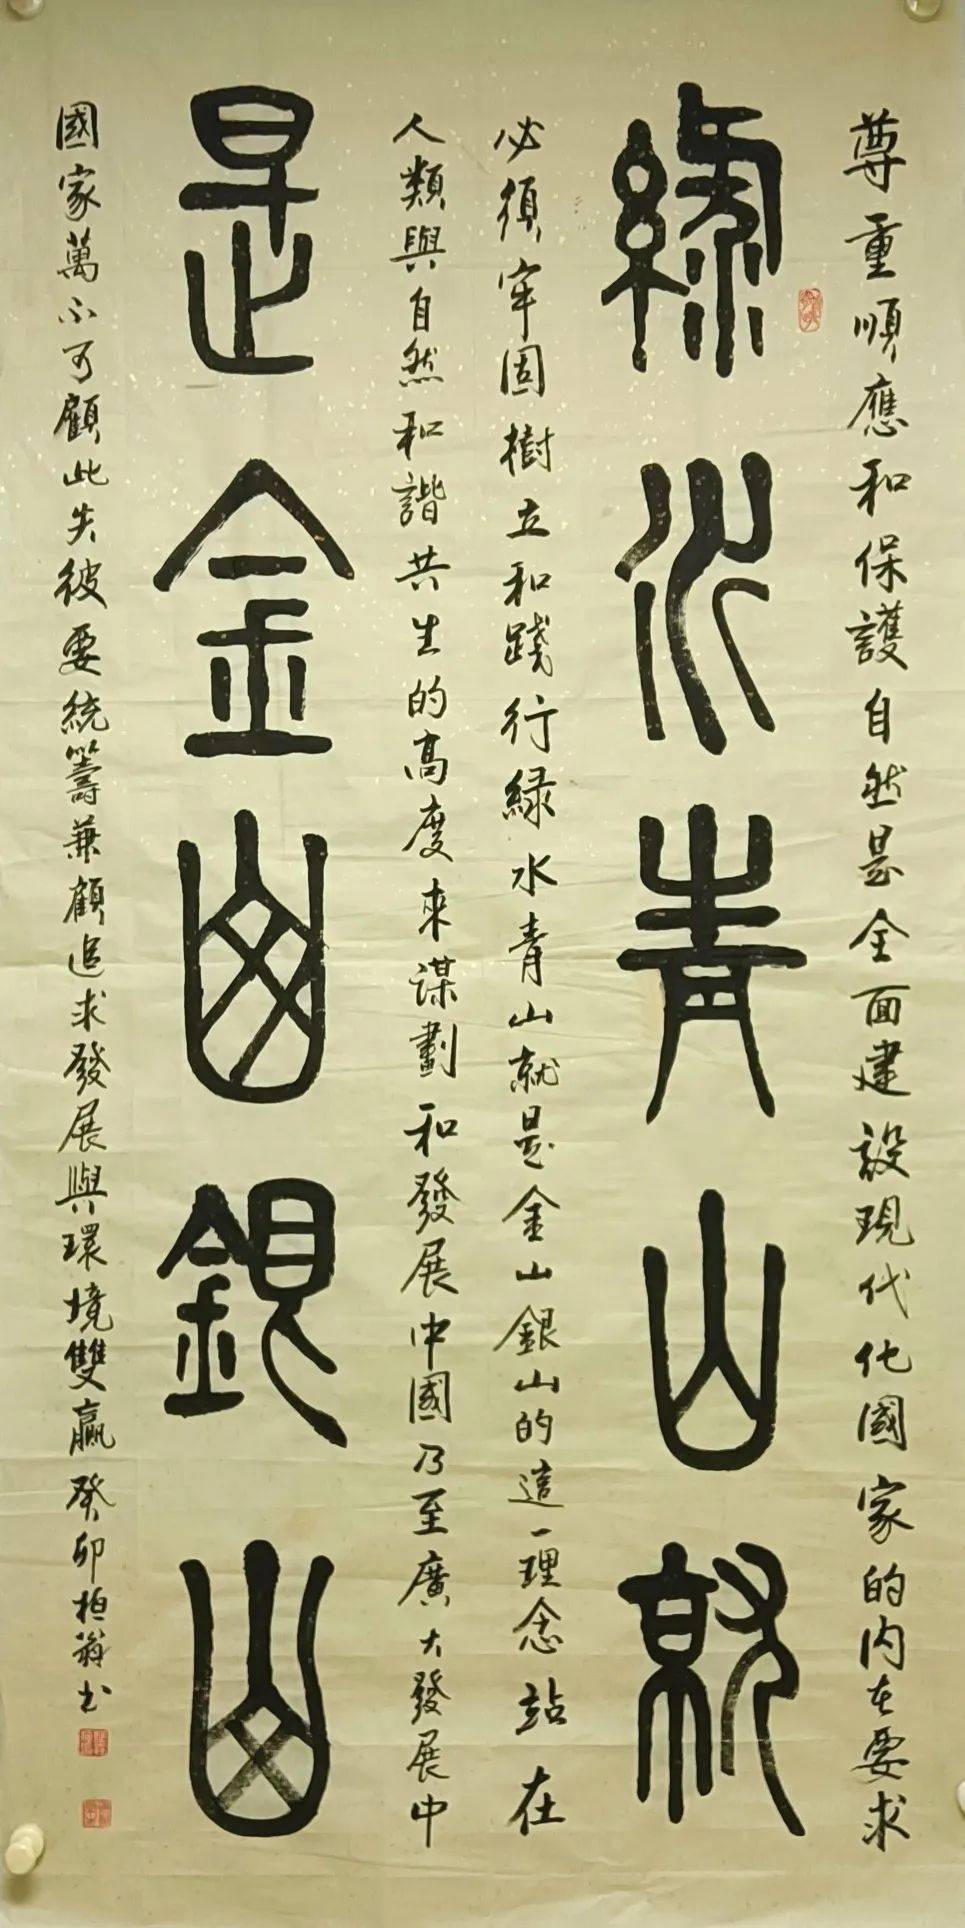 尊重順應和保護自然是全面建設現代化國家的内在要求
綠水青山就
必須牢固樹立和踐行緑水青山就是金山銀山的這一理念站在
人類與自然和諧共生的高度來謀劃和發展中國乃至廣大發展中
是金山銀山
國家萬不可顧此失彼要統籌兼顧追求發展與環境雙贏癸卯柏翁书